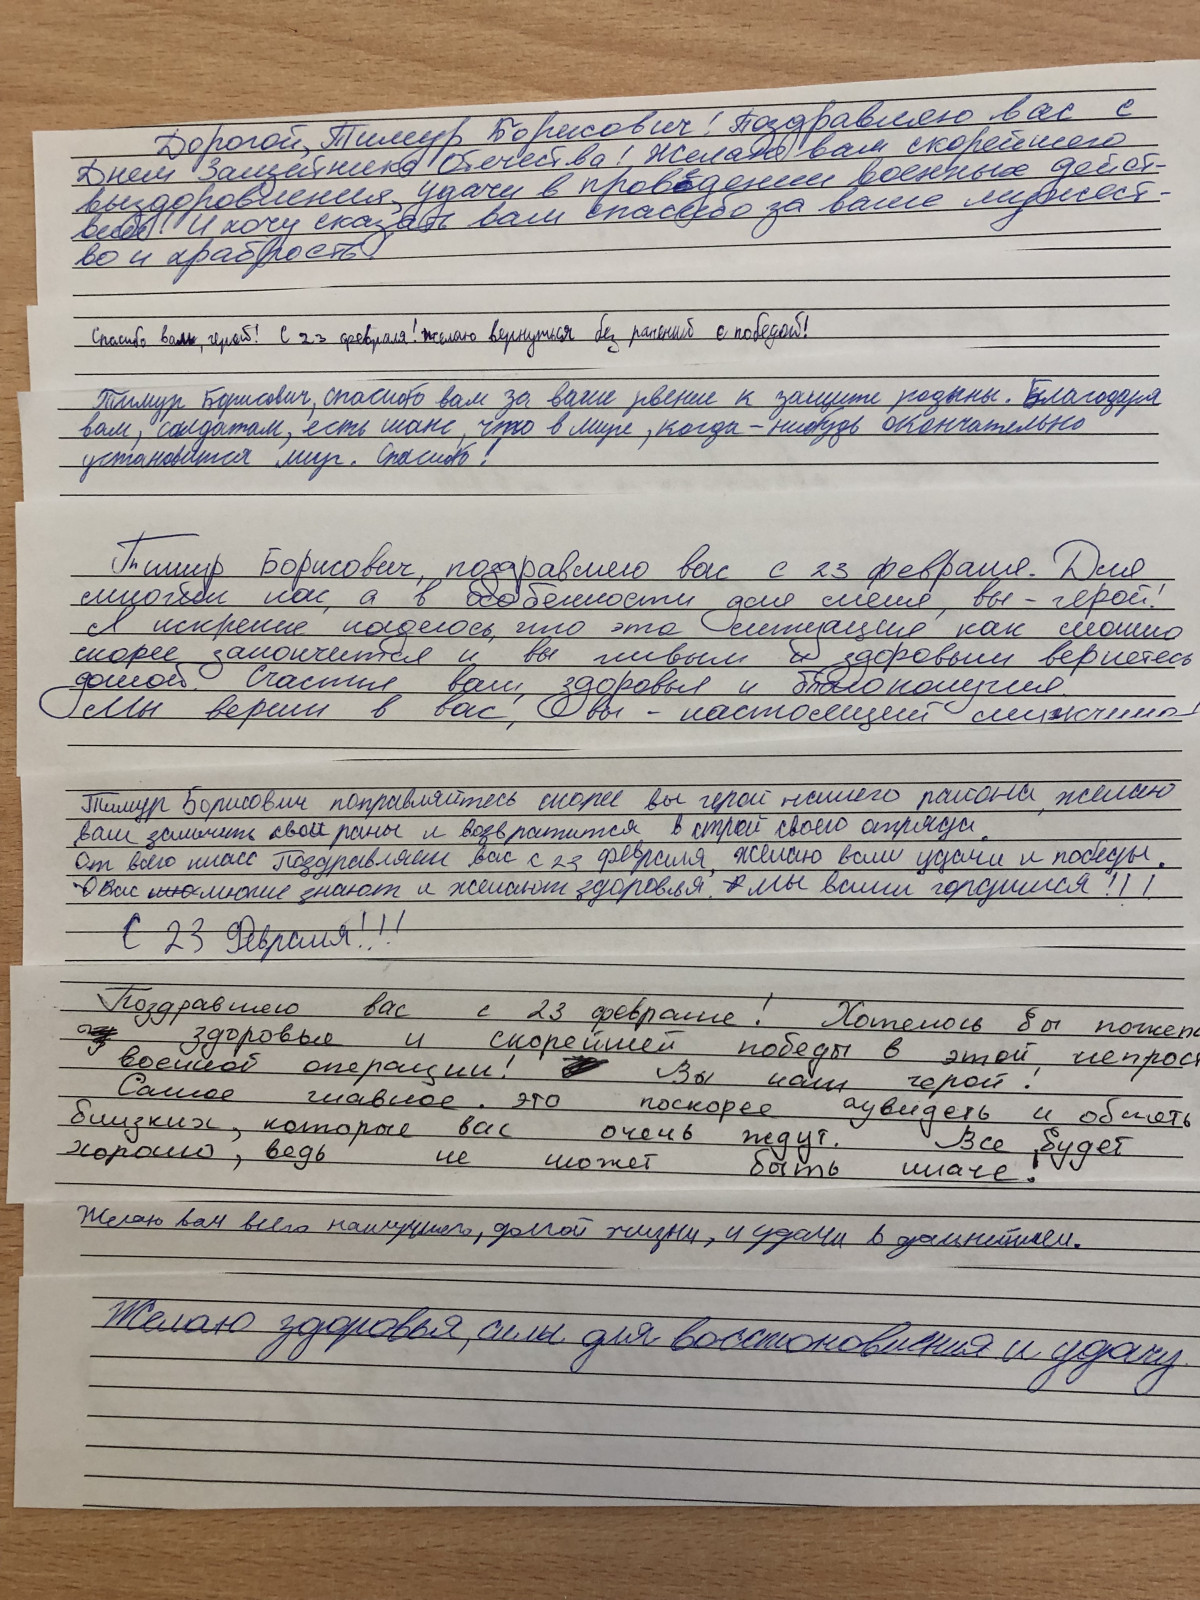 Дорогой, Тимур Борисович! Поздравляю вас с
Днем Защитника Отечества! Желаю вам скорейшего
выздоровления, удачи в проведении военных дейст-
вий! И хочу сказать вам спасибо за ваше мужест-
во и храбрость!
Спасибо вам, герой! С 23 февраля! Желаю вернуться без ранений с победой!
Тимур Борисович, спасибо вам за ваше рвение к защите родины. Благодаря
вам, солдатам, есть шанс, что в мире, когда-нибудь окончательно
установится мир. Спасибо!
Тимур Борисович, поздравляю вас с 23 февраля. Для
многих нас, а в особенности для меня, вы - герой!
Я искренне надеюсь, что эта ситуация как можно
скорее закончится и вы живым и здоровым вернетесь
домой. Счастья вам, здоровья и благополучия.
Мы верим в вас, вы - настоящий мужчина!
Тимур Борисович поправляйтесь скорее вы герой нашего района, желаю
вам залечить свои раны и возвратится в строй своего отряда.
От всего класс Поздравляем вас с 23 февраля, желаю вам удачи и победы.
О Вас многие знают и желают здоровья. Мы вами гордимся!!!
С 23 Февраля!!!
Поздравляю вас с 23 февраля! Хотелось бы пожела
здоровья и скорейшей победы в этой непрост
военной операции! Вы наш герой!
Самое главное это поскорее увидеть и обнять
близких, которые вас очень ждут. Все будет
хорошо, ведь не может быть иначе!
Желаю вам всего наилучшего, долгой жизни, и удачи в дальнейшем.
Желаю здоровья, силы для восстоновления и удачу.